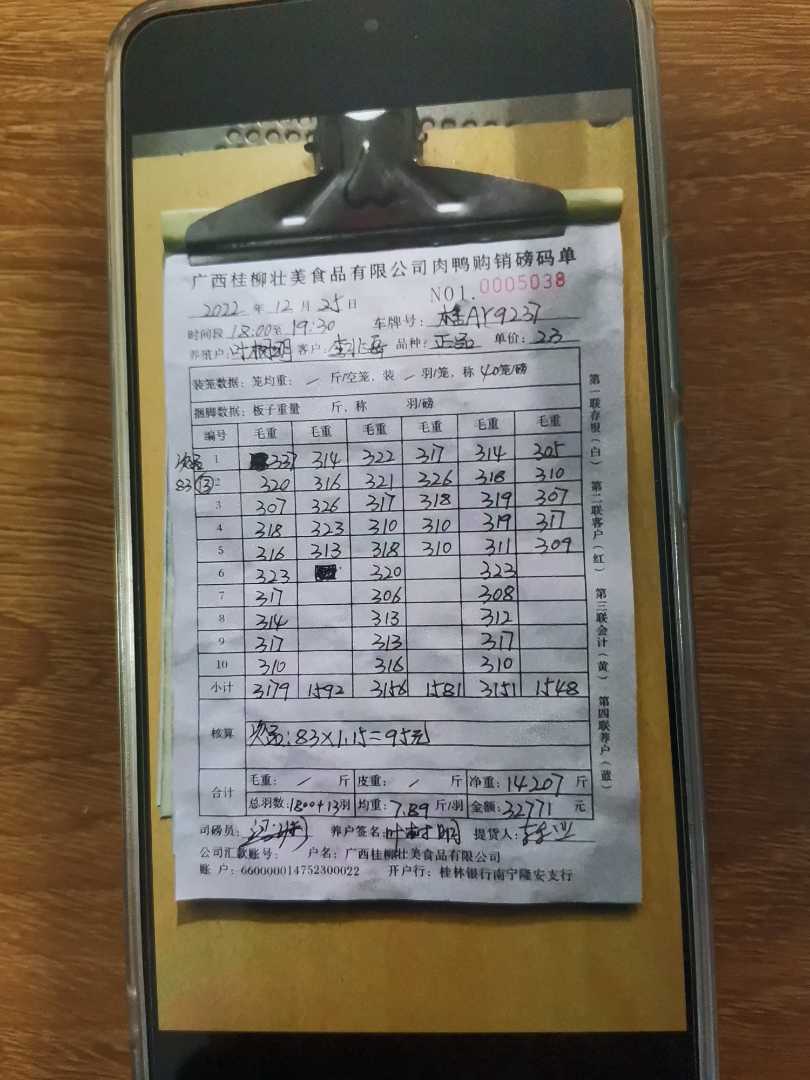 广西桂柳壮美食品有限公司肉鸭购销磅码单
2022年 12月 25日 NO1.0005038
时间段 18:00至 19:30 车牌号: 桂AY9237
养殖户: 叶树明 客户: 品种: 正品 单价: 2.3
装笼数据: 笼均重: / 斤/空笼, 装 / 羽/笼, 称 40笼/磅
捆脚数据: 板子重量 斤, 称 羽/磅
编号 毛重 毛重 毛重 毛重 毛重 毛重
次品 1 337 314 322 317 314 305
83 13 2 320 316 321 326 318 310
3 307 326 317 318 319 307
4 318 323 310 310 319 317
5 316 313 318 310 311 309
6 323 320 323
7 317 306 308
8 314 313 312
9 317 313 317
10 310 316 310
小计 3179 1592 3156 1581 3151 1548
核算 次品:83×1.15=95元
合计 毛重: / 斤 皮重: / 斤 净重: 14207 斤
总羽数: 1800+13羽 均重: 7.89 斤/羽 金额: 32771 元
司磅员: 养户签名: 叶树明 提货人:
公司汇款账号: 户名: 广西桂柳壮美食品有限公司
账户: 660000014752300022 开户行: 桂林银行南宁隆安支行
第一联存根(白) 第二联客户(红) 第三联会计(黄) 第四联养户(蓝)